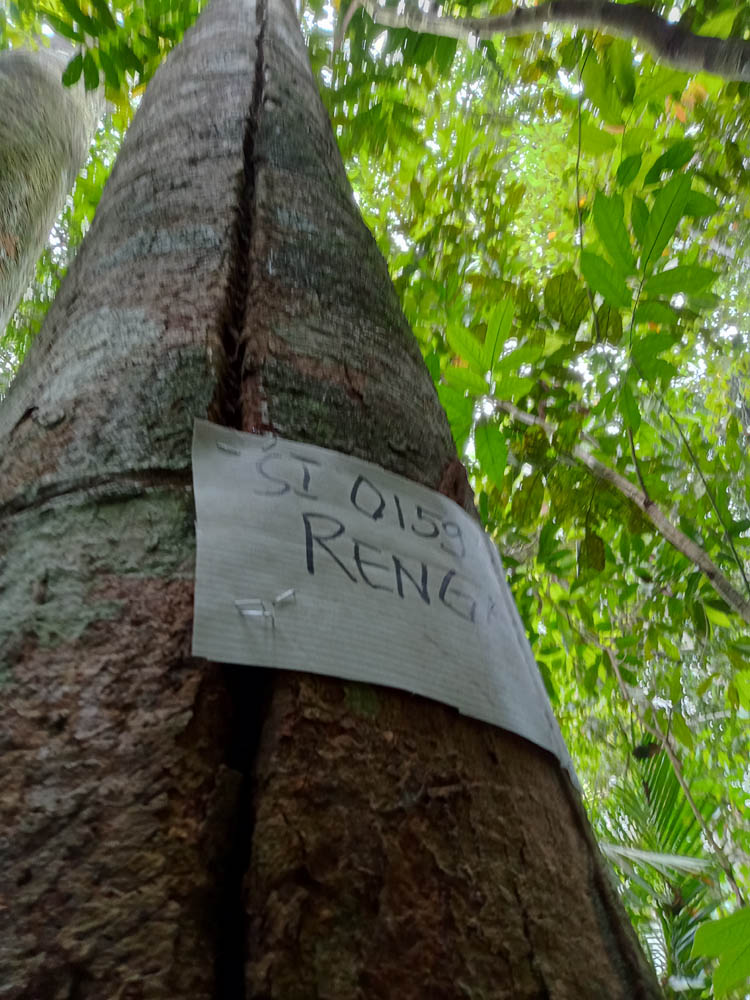 SI 0159
RENG